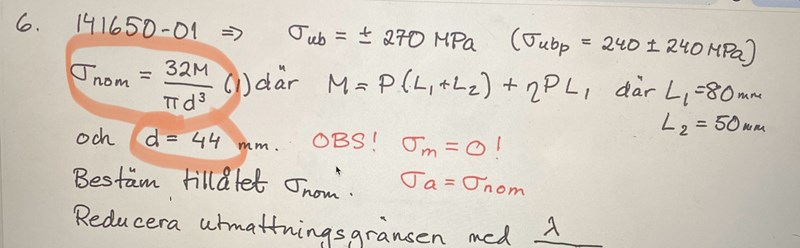 6. 141650-01 ⇒ σub = ± 270 MPa (σubp = 240 ± 240 MPa)
σnom = 32M / πd³ (1) där M = P(L₁+L₂) + ηPL₁ där L₁ = 80 mm
L₂ = 50 mm
och d = 44 mm. OBS! σm = 0!
Bestäm tillåtet σnom. σa = σnom
Reducera utmattningsgränsen med λ